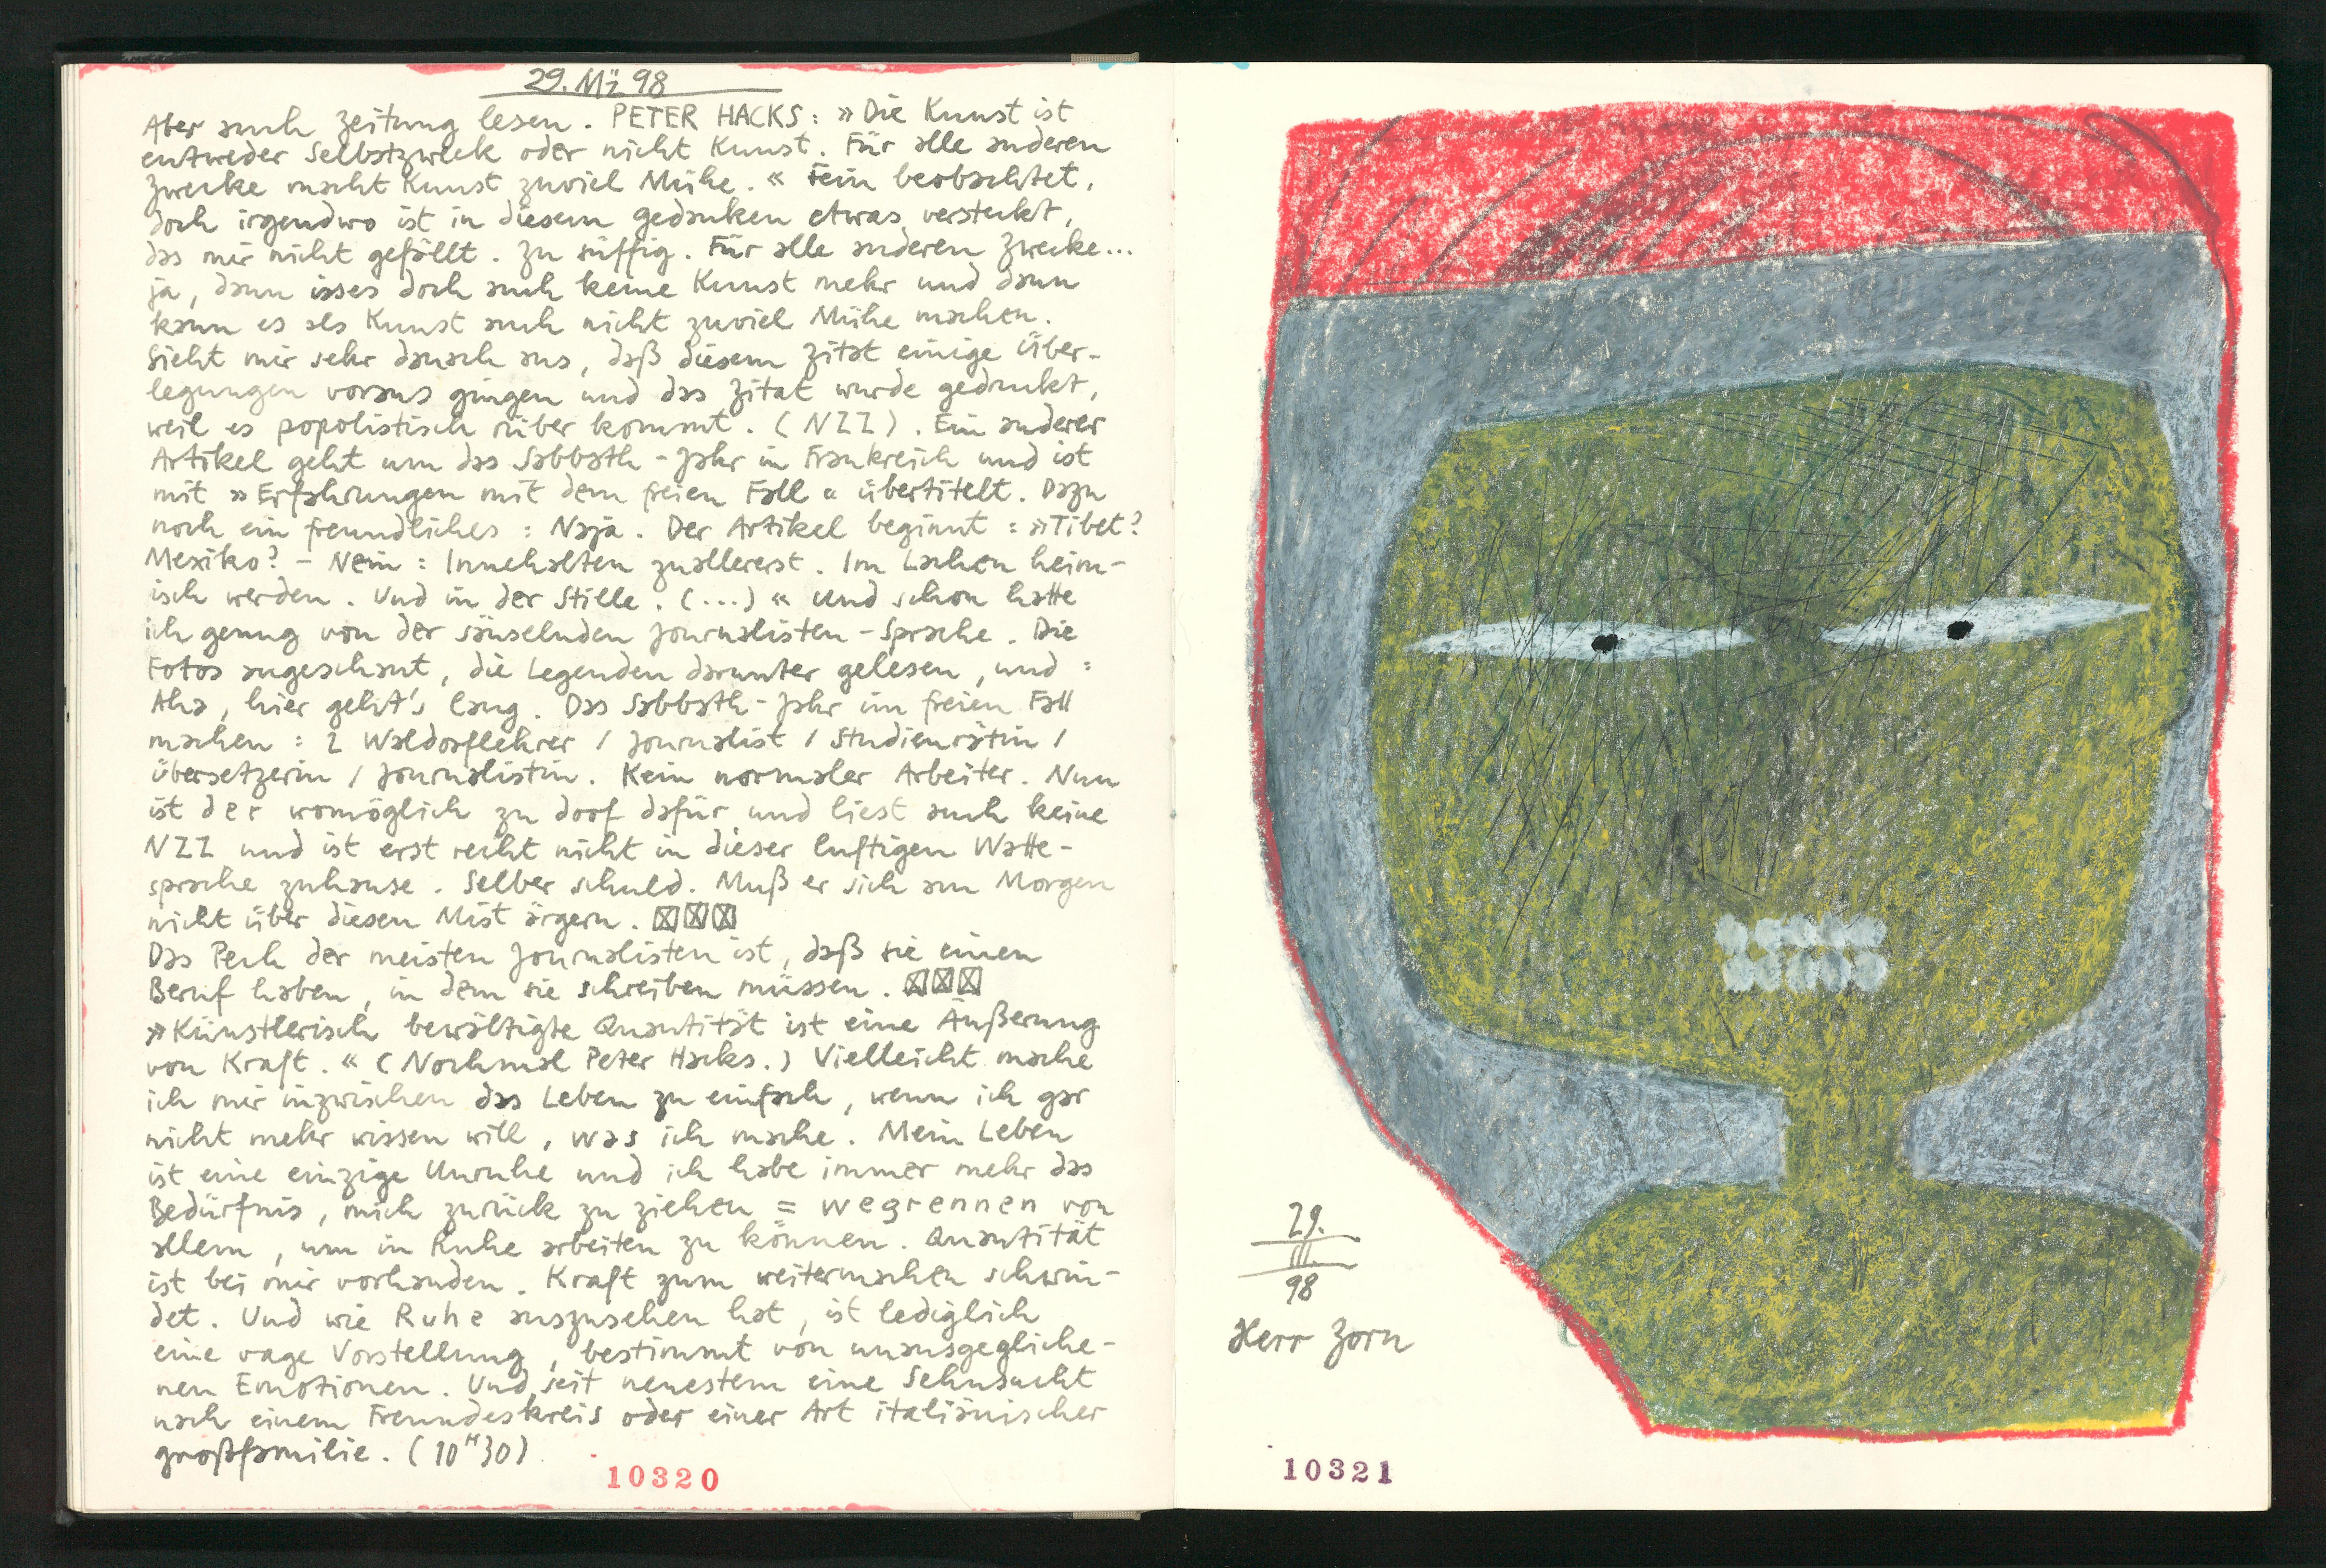 29. Mä 98
Aber auch Zeitung lesen. PETER HACKS: »Die Kunst ist
entweder Selbstzweck oder nicht Kunst. Für alle anderen
Zwecke macht Kunst zuviel Mühe.« Fein beobachtet,
doch irgendwo ist in diesem Gedanken etwas versteckt,
das mir nicht gefällt. Zu süffig. Für alle anderen Zwecke...
ja, dann isses doch auch keine Kunst mehr und dann
kann es als Kunst auch nicht zuviel Mühe machen.
Sieht mir sehr danach aus, daß diesem Zitat einige Über-
legungen voraus gingen und das Zitat wurde gedruckt,
weil es popolistisch rüber kommt. (NZZ). Ein anderer
Artikel geht um das Sabbath-Jahr in Frankreich und ist
mit »Erfahrungen mit dem freien Fall« übertitelt. Dazu
noch ein freundliches: Naja. Der Artikel beginnt: »Tibet?
Mexiko? - Nein: Innehalten zuallererst. Im Lachen heim-
isch werden. Und in der Stille. (...)« Und schon hatte
ich genug von der säuselnden Journalisten-Sprache. Die
Fotos angeschaut, die Legenden darunter gelesen, und:
Aha, hier geht's lang. Das Sabbath-Jahr im freien Fall
machen: 2 Waldorflehrer / Journalist / Studienrätin /
Übersetzerin / Journalistin. Kein normaler Arbeiter. Nun
ist der womöglich zu doof dafür und liest auch keine
NZZ und ist erst recht nicht in dieser luftigen Watte-
sprache zuhause. Selber schuld. Muß er sich am Morgen
nicht über diesen Mist ärgern.
Das Pech der meisten Journalisten ist, daß sie einen
Beruf haben, in dem sie schreiben müssen.
»Künstlerisch bewältigte Quantität ist eine Äußerung
von Kraft.« (Nochmal Peter Hacks.) Vielleicht mache
ich mir inzwischen das Leben zu einfach, wenn ich gar
nicht mehr wissen will, was ich mache. Mein Leben
ist eine einzige Unruhe und ich habe immer mehr das
Bedürfnis, mich zurück zu ziehen = wegrennen von
allem, um in Ruhe arbeiten zu können. Quantität
ist bei mir vorhanden. Kraft zum weitermachen schwin-
det. Und wie Ruhe auszusehen hat, ist lediglich
eine vage Vorstellung, bestimmt von unausgegliche-
nen Emotionen. Und seit neuestem eine Sehnsucht
nach einem Freundeskreis oder einer Art italiänischer
Großfamilie. (10H30)
10320
29.
III.
98
Herr Zorn
10321